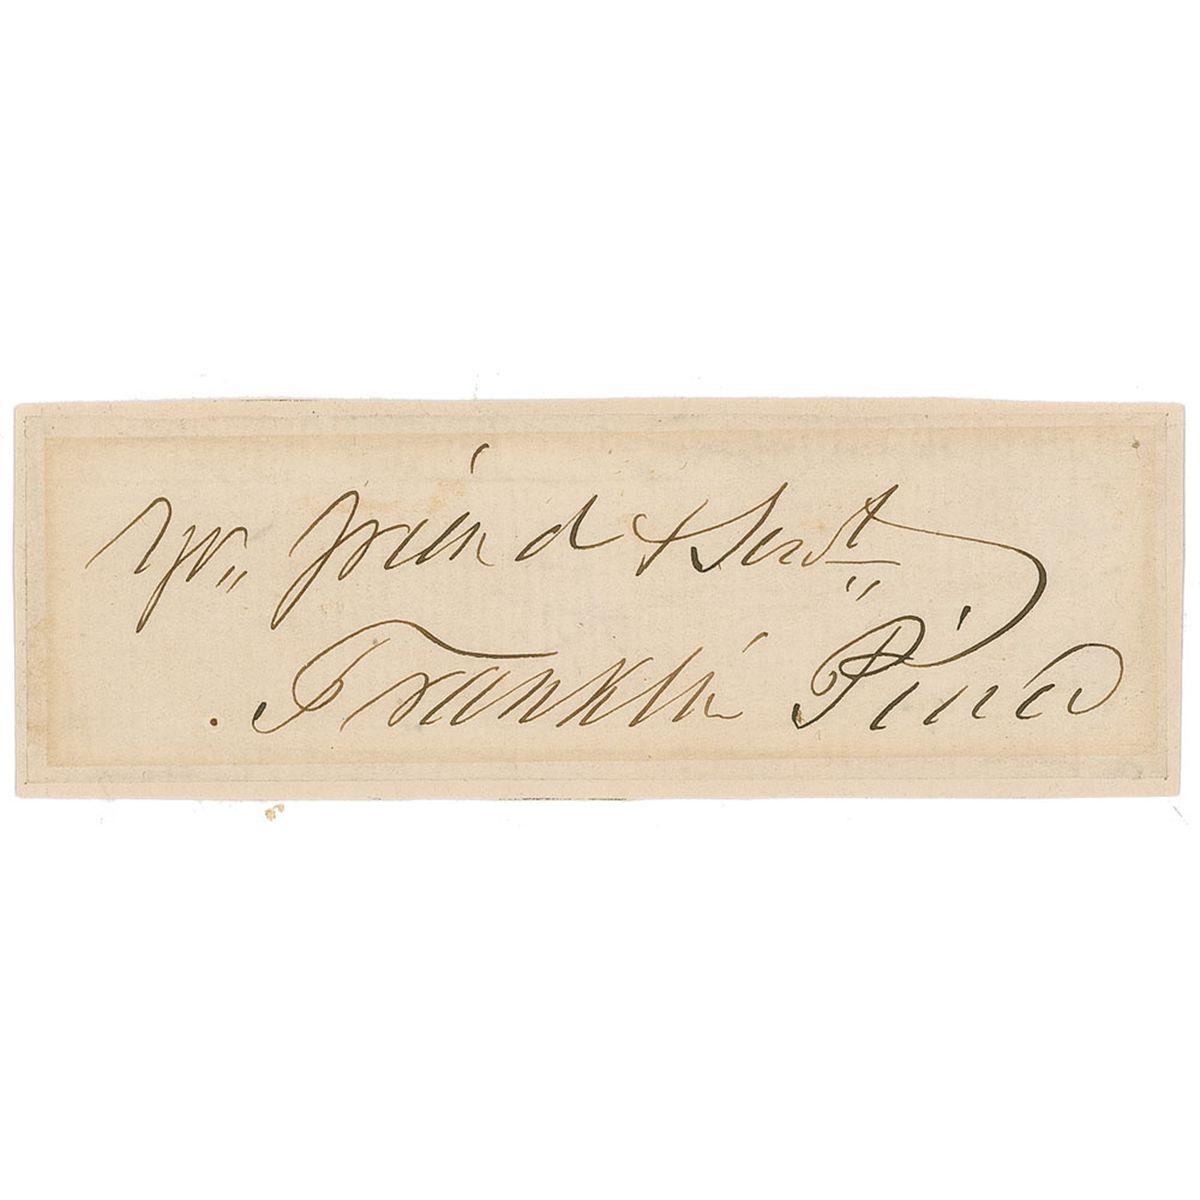 Yr,, friend & Servt
Franklin Pierce